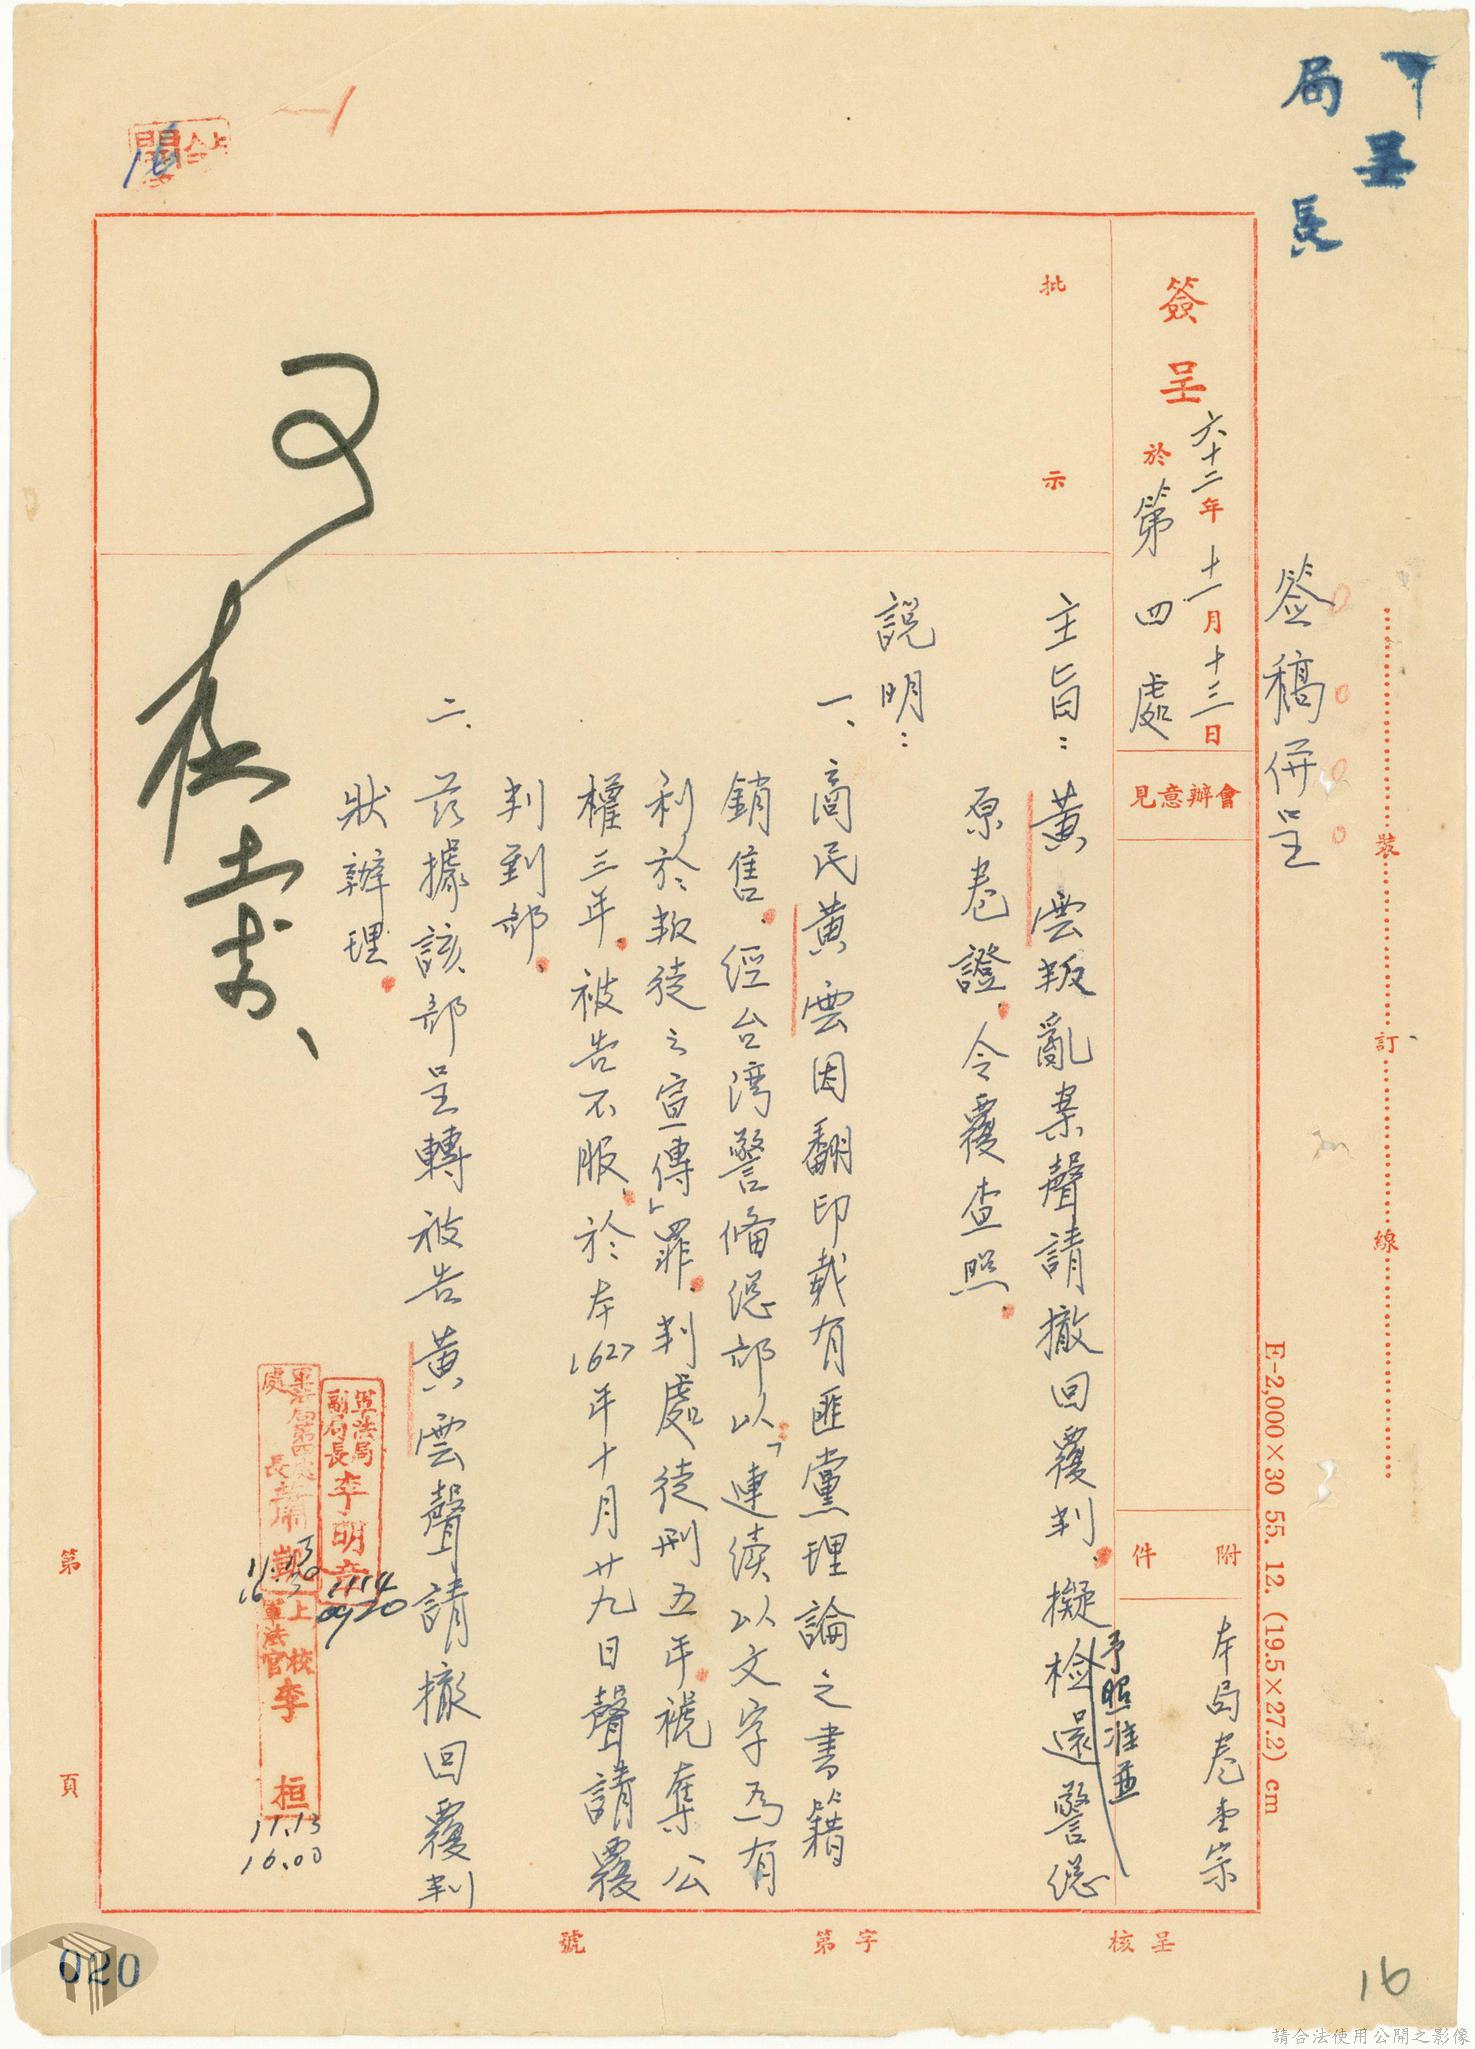 呈
局長
簽稿併呈
裝訂線
E-2,000×30 55. 12. (19.5×27.2) cm
簽呈
六十二年十一月十三日
於第四處
會辦意見
附件
本局卷壹宗
批示
主旨：黃雲叛亂案聲請撤回覆判、擬檢還警總
予照准並
原卷證、令覆查照。
說明：
一、商民黃雲因翻印載有匪黨理論之書籍
銷售、經台湾警備總部以「連續以文字為有
利於叛徒之宣傳」罪、判處徒刑五年、褫奪公
權三年、被告不服、於本(62)年十月廿九日聲請覆
判到部、
二、茲據該部呈轉被告黃雲聲請撤回覆判
狀辦理。
可
軍法局副局長李明
1114
0920
軍法局第四處處長蕭
11.13
上校軍法官李桓
11.13
16.00
第 頁
呈核
字第
號
020
16
請合法使用公開之影像